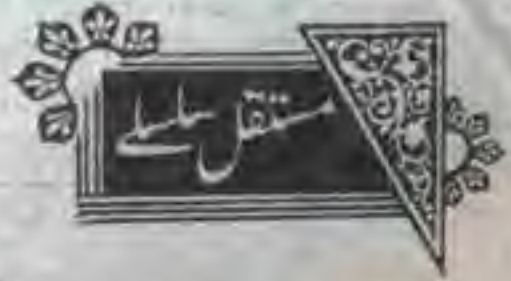 مستقل سلسلے